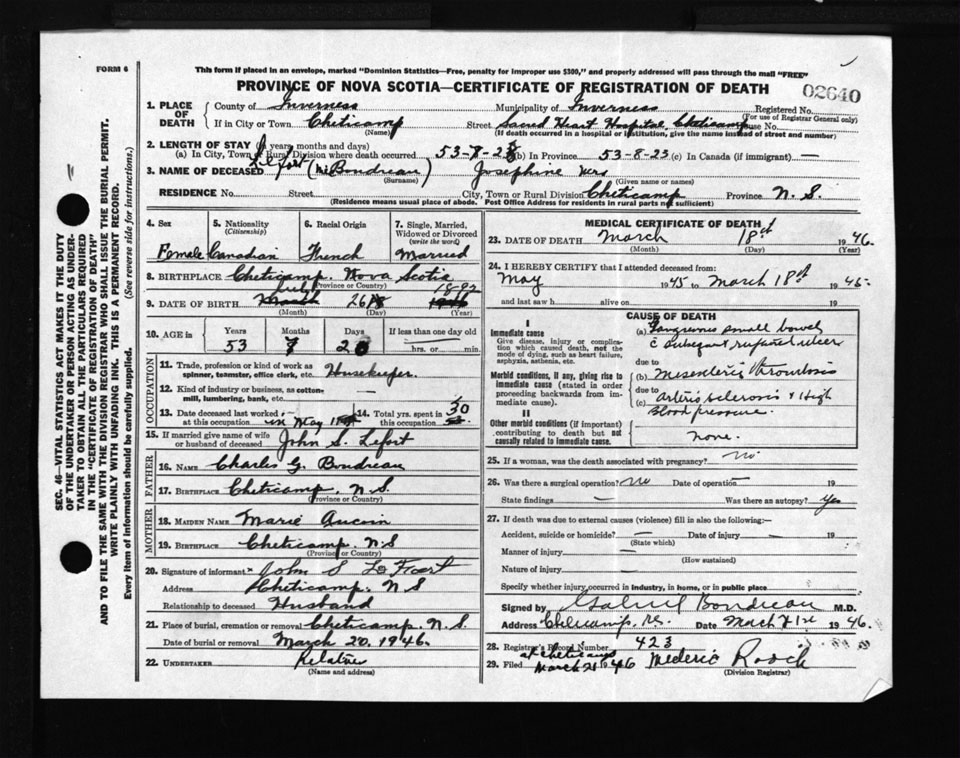 FORM 6
This form if placed in an envelope, marked "Dominion Statistics—Free, penalty for improper use $300," and properly addressed will pass through the mail "FREE"
PROVINCE OF NOVA SCOTIA—CERTIFICATE OF REGISTRATION OF DEATH
02640
1. PLACE OF DEATH
County of Inverness Municipality of Inverness Registered No.
(For use of Registrar General only)
If in City or Town Cheticamp Street Sacred Heart Hospital, Cheticamp House No.
(Name) (If death occurred in a hospital or institution, give the name instead of street and number)
2. LENGTH OF STAY (in years months and days)
(a) In City, Town or Rural Division where death occurred 53-8-23 (b) In Province 53-8-23 (c) In Canada (if immigrant) —
3. NAME OF DECEASED Lefort (née Boudreau) Josephine Mrs
(Surname) (Given name or names)
RESIDENCE No. Street City, Town or Rural Division Cheticamp Province N. S.
(Residence means usual place of abode. Post Office Address for residents in rural parts not sufficient)
4. Sex
Female
5. Nationality
(Citizenship)
Canadian
6. Racial Origin
French
7. Single, Married, Widowed or Divorced
(write the word)
Married
8. BIRTHPLACE Cheticamp, Nova Scotia
(Province or Country)
9. DATE OF BIRTH July 26 1892
(Month) (Day) (Year)
10. AGE in
Years Months Days If less than one day old
53 7 20 hrs. or min.
OCCUPATION
11. Trade, profession or kind of work as spinner, teamster, office clerk, etc. Housekeeper.
12. Kind of industry or business, as cotton-mill, lumbering, bank, etc.
13. Date deceased last worked at this occupation in May
14. Total yrs. spent in this occupation 30
15. If married give name of wife or husband of deceased John S. Lefort
FATHER
16. NAME Charles G. Boudreau
17. BIRTHPLACE Cheticamp, N.S.
(Province or Country)
MOTHER
18. MAIDEN NAME Marie Aucoin
19. BIRTHPLACE Cheticamp. N.S
(Province or Country)
20. Signature of informant John S Le Fort
Address Cheticamp. N S
Relationship to deceased Husband
21. Place of burial, cremation or removal Cheticamp N. S.
Date of burial or removal March 20, 1946.
22. UNDERTAKER Relative
(Name and address)
MEDICAL CERTIFICATE OF DEATH
23. DATE OF DEATH March 18th 1946.
(Month) (Day) (Year)
24. I HEREBY CERTIFY that I attended deceased from:
May 1945 to March 18th 1945.
and last saw h alive on 19
CAUSE OF DEATH
I
Immediate cause
Give disease, injury or complication which caused death, not the mode of dying, such as heart failure, asphyxia, asthenia, etc.
(a) Gangrenous small bowel
due to
Morbid conditions, if any, giving rise to immediate cause (stated in order proceeding backwards from immediate cause).
(b) Mesenteric thrombosis
due to
(c) Arterio sclerosis & High Blood pressure.
II
Other morbid conditions (if important) contributing to death but not causally related to immediate cause.
none.
25. If a woman, was the death associated with pregnancy? no
26. Was there a surgical operation? no Date of operation — 19
State findings — Was there an autopsy? yes
27. If death was due to external causes (violence) fill in also the following:—
Accident, suicide or homicide? — Date of injury — 19
(State which)
Manner of injury —
(How sustained)
Nature of injury —
Specify whether injury occurred in industry, in home, or in public place
Signed by Gabriel Boudreau M.D.
Address Cheticamp, N.S. Date March 21st 1946.
28. Registrar's Record Number 423
at Cheticamp
29. Filed March 21 1946 Mederic Roach
(Division Registrar)
SEC. 46—VITAL STATISTICS ACT MAKES IT THE DUTY
OF THE UNDERTAKER OR PERSON ACTING AS UNDER-
TAKER TO OBTAIN ALL THE PARTICULARS REQUIRED
IN THE "CERTIFICATE OF REGISTRATION OF DEATH"
AND TO FILE THE SAME WITH THE DIVISION REGISTRAR WHO SHALL ISSUE THE BURIAL PERMIT.
WRITE PLAINLY WITH UNFADING INK. THIS IS A PERMANENT RECORD.
Every item of information should be carefully supplied. (See reverse side for instructions.)